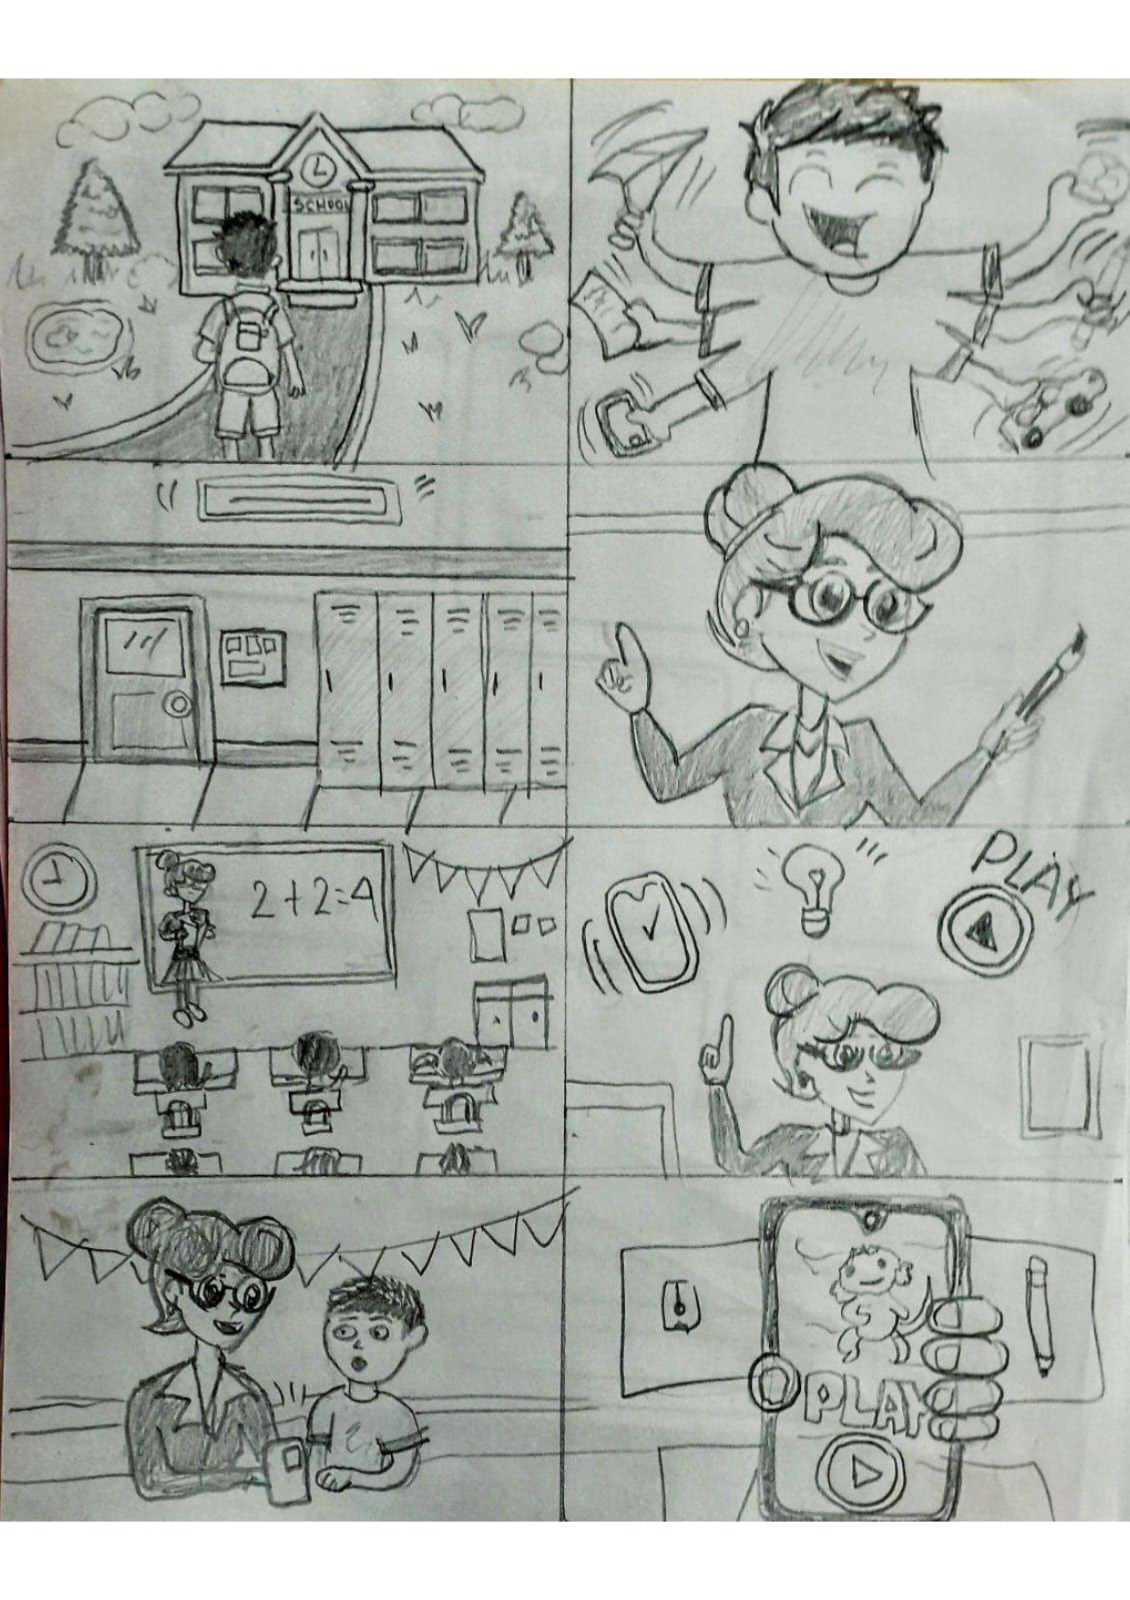 SCHOOL
2+2=4
PLAY
PLAY